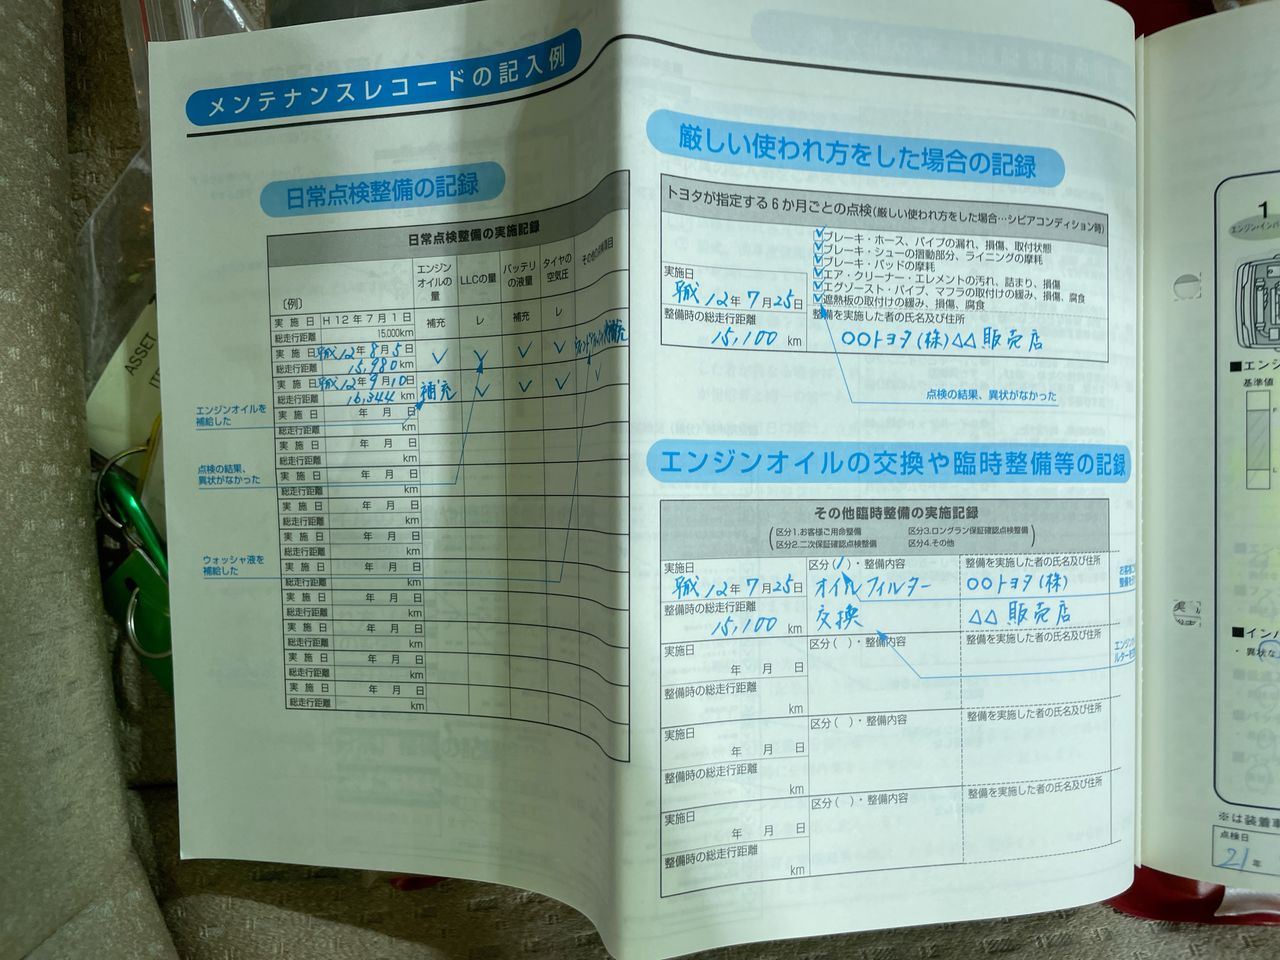 メンテナンスレコードの記入例
日常点検整備の記録
日常点検整備の実施記録
エンジンオイルの量
LLCの量
バッテリの液量
タイヤの空気圧
〔例〕
実施日 H12年7月1日 補充 レ 補充 レ
総走行距離 15,000km
実施日 12年8月5日
総走行距離 15,980km
実施日 12年9月10日 補充
総走行距離 16,344km
実施日 年 月 日
総走行距離 km
実施日 年 月 日
総走行距離 km
実施日 年 月 日
総走行距離 km
実施日 年 月 日
総走行距離 km
実施日 年 月 日
総走行距離 km
実施日 年 月 日
総走行距離 km
実施日 年 月 日
総走行距離 km
実施日 年 月 日
総走行距離 km
実施日 年 月 日
総走行距離 km
実施日 年 月 日
総走行距離 km
エンジンオイルを
補給した
点検の結果、
異状がなかった
ウォッシャ液を
補給した
厳しい使われ方をした場合の記録
トヨタが指定する6か月ごとの点検(厳しい使われ方をした場合…シビアコンディション時)
ブレーキ・ホース、パイプの漏れ、損傷、取付状態
ブレーキ・シューの摺動部分、ライニングの摩耗
ブレーキ・パッドの摩耗
エア・クリーナー・エレメントの汚れ、詰まり、損傷
エグゾースト・パイプ、マフラの取付けの緩み、損傷、腐食
遮熱板の取付けの緩み、損傷、腐食
実施日
12年7月25日
整備時の総走行距離
15,100 km
整備を実施した者の氏名及び住所
○○トヨタ(株)△△販売店
点検の結果、異状がなかった
エンジンオイルの交換や臨時整備等の記録
その他臨時整備の実施記録
区分1.お客様ご用命整備 区分3.ロングラン保証確認点検整備
区分2.二次保証確認点検整備 区分4.その他
実施日 区分(1)・整備内容 整備を実施した者の氏名及び住所
12年7月25日 オイルフィルター ○○トヨタ(株)
整備時の総走行距離 交換 △△販売店
15,100 km
実施日 区分( )・整備内容 整備を実施した者の氏名及び住所
年 月 日
整備時の総走行距離
km
実施日 区分( )・整備内容 整備を実施した者の氏名及び住所
年 月 日
整備時の総走行距離
km
実施日 区分( )・整備内容 整備を実施した者の氏名及び住所
年 月 日
整備時の総走行距離
km
ASSET
1
■エンジ
基準値
F
L
■イン
・異状な
※は装着車
点検日
21年